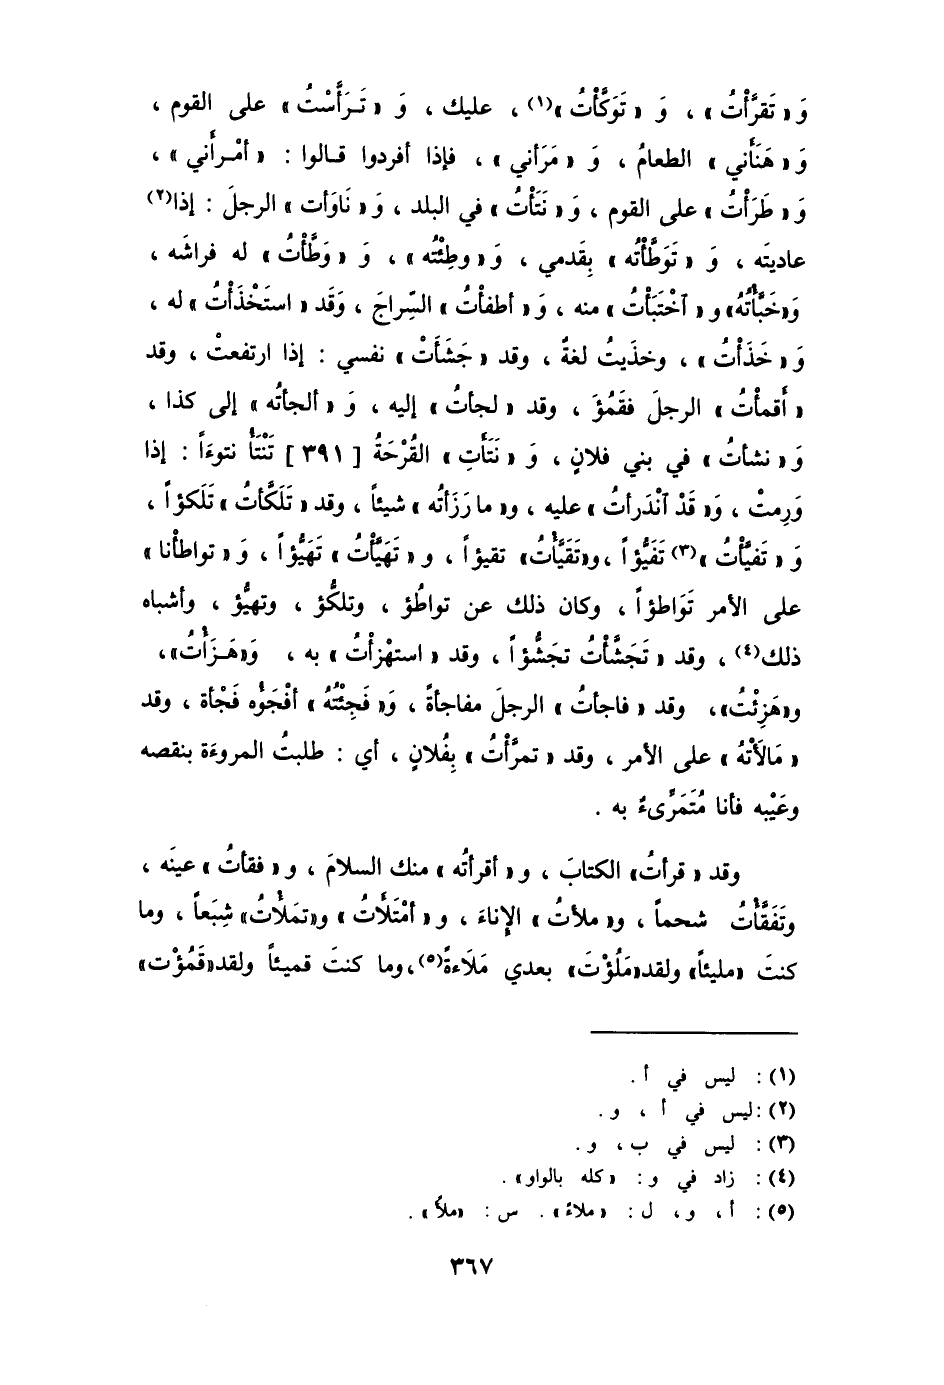 وَ « تَقرَّأْتُ » ، وَ « تَوَكَّأْتُ »(١) ، عليك ، وَ « تَـرَأَّسْتُ » على القوم ،
وَ « هَنَأَني » الطعامُ ، وَ « مَرَأني » ، فإذا أفردوا قـالوا : « أمْـرأَني » ،
وَ « طَرَأْتُ » على القوم ، وَ « نَتَأْتُ » في البلد ، وَ « نَاوَأت » الرجلَ : إذا(٢)
عاديتَه ، وَ « تَوَطَّأْتُه » بِقَدمي ، وَ « وطِئْتُه » ، وَ « وَطَّأْتُ » له فراشَه ،
وَ«خَبَّأْتُهُ» و « آخْتَبَأْتُ » منه ، وَ « أطفأْتُ » السِّراجَ ، وَقَد « استَخْذَأْتُ » له ،
وَ « خَذَأْتُ » ، وخذَيتُ لغةٌ ، وقد « جَشَأَتْ » نفسي : إذا ارتفعتْ ، وقد
« أَقمأْتُ » الرجلَ فقَمُؤَ ، وقد « لجأتُ » إليه ، وَ « ألجأتُه » إلى كذا ،
وَ « نشأتُ » في بني فلانٍ ، وَ « نَتَأَتِ » القُرْحَةُ [ ٣٩١ ] تَنْتَأُ نتوءَاً : إذا
وَرِمتْ ، وَ« قَدْ آنْدَرأتُ » عليه ، و« ما رَزَأتُه » شيئاً ، وقد « تَلَكَّأتُ » تَلَكؤاً ،
وَ « تَفيَّأْتُ »(٣) تَفَيُّؤاً ،و«تَقَيَّأْتُ» تقيؤاً ، و « تَهَيَّأْتُ » تَهَيُّؤاً ، وَ « تواطأْنا »
على الأمر تَوَاطؤاً ، وكان ذلك عن تواطُؤ ، وتلكُّؤ ، وتهيُّؤ ، وأشباه
ذلك(٤) ، وقد « تَجَشَّأْتُ تجَشُّؤاً ، وقد « استهْزأْتُ » به ، وَ«هَـزَأْتُ»،
و«هَزِئْتُ»، وقد « فاجأتُ » الرجلَ مفاجأةً ، وَ« فَجِئْتُهُ » أفْجَؤُه فَجْأة ، وقد
« مَالَأْتهُ » على الأمر ، وقد « تمرَّأْتُ » بِفُلانٍ ، أي : طلبتُ المروءَة بنقصه
وعَيْبه فأنا مُتَمَرِّىءٌ به .
وقد « قرأتُ» الكتابَ ، و « أقرأتُه » منك السلامَ ، و « فقأتُ » عينَه ،
وتَفَقَّأْتُ شحماً ، و« ملأتُ » الإناءَ ، و « أمْتَلَأتُ » و«تمَلأْتُ» شِبَعاً ، وما
كنتَ «مليئاً» ولقد«مَلُؤْتَ» بعدي مَلَاءةً(٥)،وما كنتَ قميئاً ولقد«قَمُؤْت»
(١): ليس في أ .
(٢):ليس في أ ، و .
(٣): ليس في ب ، و .
(٤): زاد في و : «كله بالواو» .
(٥): أ ، و ، ل : «ملاءً» . س : «ملأً» .
٣٦٧